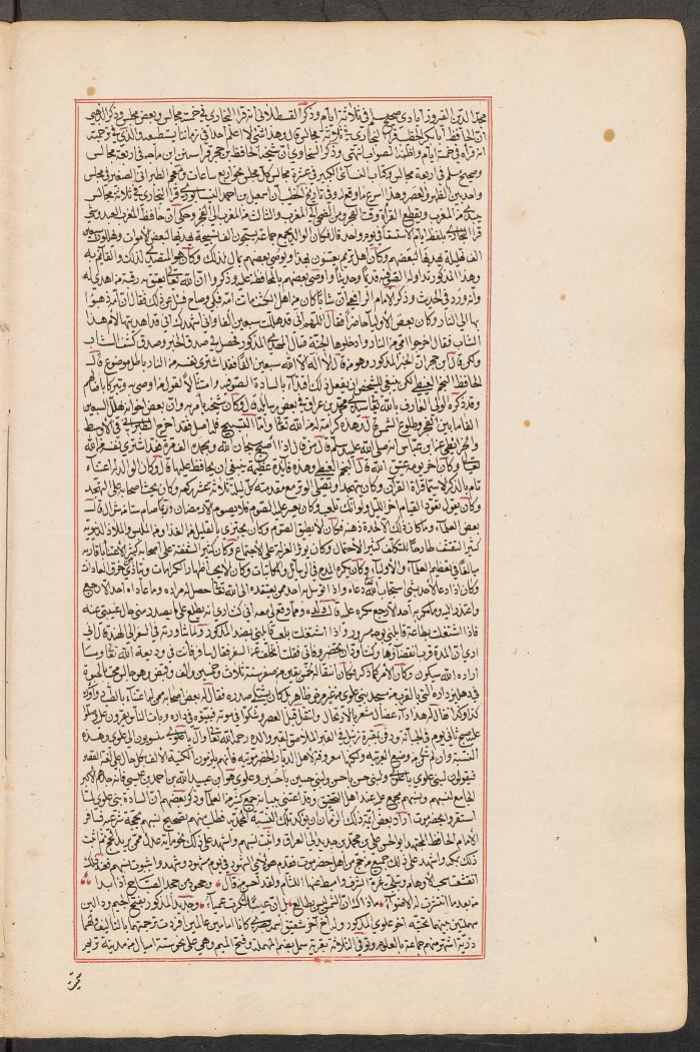 مجد الدين الفيروزآبادي صحيح مسلم في ثلاثة ايام وذكر القسطلاني انه قرا البخاري في خمسة مجالس وبعض مجلس وذكر الذهبي
ان الحافظ ابا بكر الخطيب قرا البخاري في ثلاثة مجالس قال وهذا شي لا اعلم احدا في زماننا يستطيعه والذي في ترجمته
انه قراه في خمسة ايام واظنه الصواب انتهى وذكر السخاوي ان شيخه الحافظ ابن حجر قرا سنن ابن ماجه في اربعة مجالس
وصحيح مسلم في اربعة مجالس وكتاب النسائي الكبير في عشرة مجالس كل مجلس نحو اربع ساعات ومعجم الطبراني الصغير في مجلس
واحد بين الظهر والعصر وهذا اسرع ما وقع له وفي تاريخ الخطيب ان اسمعيل بن احمد النيسابوري قرا البخاري في ثلاثة مجالس
يبتدي من المغرب ويقطع القراة وقت الفجر ومن الضحى الى المغرب والثالث من المغرب الى الفجر وحكى ان حافظ المغرب العبدوسي
قرا البخاري بلفظه ايام الاستسقا في يوم واحد قال وكان الوالد يجمع جماعة يسبحون الف تسبيحة يهديها لبعض الاموات ويهللون سبعين
الف تهليلة يهديها لبعضهم وكان اهل تريم يعتنون بهذا ويوصي بعضهم بمال لذلك وكان هو المتصدي لذلك والقائم به
وهذا المذكور تداوله الصوفية قديما وحديثا واوصى بعضهم بالمحافظة عليه وذكروا ان الله تعالى يعتق به رقبة من اهدي له
وانه ورد في الحديث وذكر الامام الرافعي ان شابا كان من اهل الكشف ماتت امه فبكى وصاح فسئل عن ذلك فقال ان امه ذهبوا
بها الى النار وكان بعض الاوليا حاضرا فقال اللهم اني قد هللت سبعين الفا واني اشهدك اني قد اهديتها لام هذا
الشاب فقال اخرجوا امي من النار وادخلوها الجنة فقال المهدي المذكور فحصل لي صدق الخبر وصدق كشف الشاب
الحافظ النجم الغيطي لكن ينبغي للشخص ان يفعل ذلك اقتداء بالسادة الصوفية وامتثالا لقول من اوصى به وتبركا بافعالهم
وقد ذكره الولي العارف بالله تعالى سيدي محمد بن عراق في بعض رسائله قال وكان شيخه يامر به وان بعض اخوانه يهلل السبعين
الفا ما بين الفجر وطلوع الشمس قال وهذه كرامة له من الله تعالى واما التسبيح فله اصل فقد اخرج الطبراني في الاوسط
والخرايطي عن ابن عباس انه صلى الله عليه وسلم قال من قال اذا اصبح سبحان الله وبحمده الف مرة فقد اشترى نفسه من الله
تعالى وكان اخر يومه عتيق الله قال النجم الغيطي وهذه فائدة عظيمة ينبغي ان يحافظ عليها قال وكان الوالد له اعتناء
تام بالذكر لا سيما قراة القران وكان يتهجد ويصلي الوتر مع مقدمته كل ليلة ثلاث عشر ركعة وكان يحث اصحابه على التهجد
وكان يقول تعود القيام اخر الليل ولو انك تلعب وكان يعسر عليه الصوم فلا يصوم الا رمضان وربما صام ستا من شوال
بعض العلماء وما كان ذلك الا لحدة ذهنه فكان لا يطيق الصوم وكان يجتزي بالقليل من الغذا ومن الملبس والملاذ الدنيوية
كثير التقشف طارحا للتكلف كثير الاحتمال وكان يوثر العزلة على الاجتماع وكان كثير الشفقة على اصحابه
مبالغا في تعظيم العلماء والاولياء وكان يكره المدح في الرسائل والمكاتبات وكان لا يحب اظهار الكرامات وخرق العادات
وكان اذا دعا لاحد بشي استجاب الله دعاءه واذا توسل به احد ممن يعتقده الى الله تعالى حصل له مراده وما عاداه احد الا رجع
واعتذر اليه وما مكر به احد الا رجع مكره عليه قال ولده ومما وقع لي معه اني كنت ارى انه يطلع على ما يصدر مني حال غيبتي عنه
فاذا اشتغلت بطاعة قابلني بوجه مسرور واذا اشتغلت بلعب قابلني بضد المذكور ولما شاورته في السفر الى الهند قال لي
ارى ان المدة قرب انقضاوها وكنت اود ان تحضر وفاتي فقلت اتخلف عن السفر فقال سافر فانت في وديعة الله تعالى وما
اراده الله سيكون وكان الامر كما ذكر فكان انتقاله ضحوة يوم من صفر سنة ثلاث وخمسين والف وقبض وهو جالس محتب الحبوة
في دهليز داره التي بالقرب من مسجد بني علوي من غير مرض ظاهر بل كان يشتكي صدره فقال له بعض اصحابه ممن له اعتناء بالطب دواوه
كذا وكذا فقال له هذا داء عضال مشعر بالارتحال وانتقل قبل العصر وشكوا في موته فبيتوه في داره وبات الناس يقرون عليه
صبح ثاني يوم في الجبانة ودفن بمقبرة زنبل في القبر الملاصق لقبر والده رحمه الله تعالى وآل باعلوي منسوبون الى علوي وهذه
النسبة وان لم تكن من وضع العربية ولكنها معروفة لاهل الديار الحضرمية فانهم يلزمون الكنية الالف بكل حال على لغة القصر
فيقولون لبني علوي باعلوي ولبني حسن باحسن ولبني حسين باحسين وعلوي هو ابن عبيد الله بن احمد بن عيسى فانه جدهم الاكبر
الجامع لنسبهم ونسبهم مجمع عليه عند اهل التحقيق وقد اعتنى ببيانه جمع كثير من العلماء وذكر بعضهم ان السادة بني علوي لما
استقروا بحضرموت اراد بعض ائمة ذلك الزمان ان يوكد تلك النسبة المحمدية فطلب منهم تصحيح نسبهم بحجة شرعية فسافر
الامام الحافظ المجتهد ابو الحسن علي بن محمد بن جديد الى العراق واثبت نسبهم واشهد على ذلك نحو مائة عدل ممن يريد الحج ثم اثبت
ذلك بمكة واشهد على ذلك جميع من حج من اهل حضرموت فقدم هولاء الشهود في يوم مشهود وشهدوا بثبوت نسبهم فعند ذلك
انقشعت سحب الاوهام وتبلج غرة الشرف واميط عنها اللثام ولقد احسن من قال وجحود من جحد الصباح اذا بدا
من بعد ما انتشرت له الاضواء ما دل ان الفجر ليس بطالع بل ان عينا انكرت عمياء وجديد المذكور بفتح الجيم ودالين
مهملتين بينهما تحتية اخو علوي المذكور ولهما اخ آخر شقيق اسمه بصري كانا امامين عالمين افردت ترجمتهما بالتاليف ولهما
ذرية اشتهر منهم جماعة بالعلم وتوفي الثلاثة بقرية سمل بضم المهملة وفتح الميم وهي على نحو ستة اميال من مدينة تريم